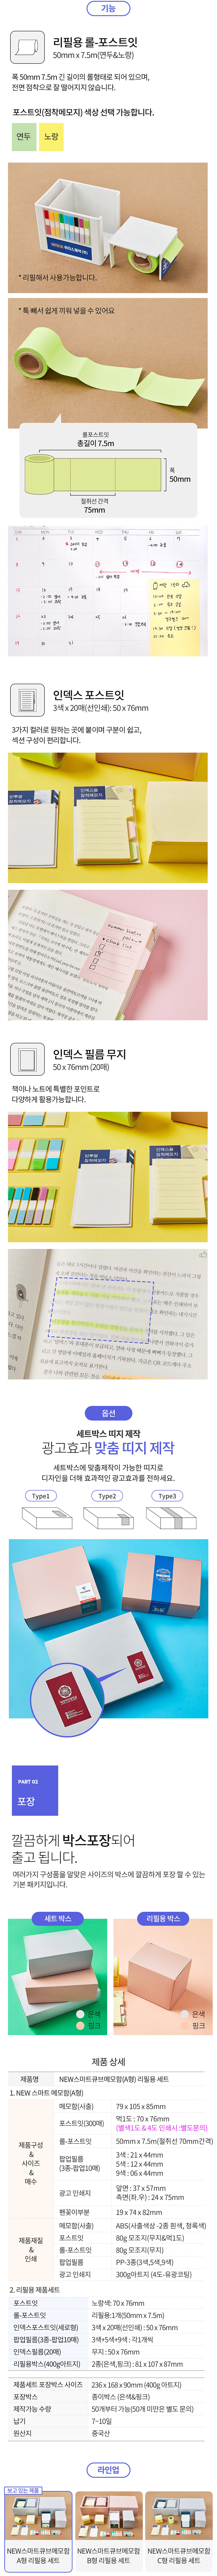 기능
리필용 롤-포스트잇
50mm x 7.5m(연두&노랑)
폭 50mm 7.5m 긴 길이의 롤형태로 되어 있으며,
전면 점착으로 잘 떨어지지 않습니다.
포스트잇(점착메모지) 색상 선택 가능합니다.
연두
노랑
* 리필해서 사용가능합니다.
* 툭 빼서 쉽게 끼워 넣을 수 있어요
롤포스트잇
총길이 7.5m
폭
50mm
절취선 간격
75mm
인덱스 포스트잇
3색 x 20매(선인쇄) : 50 x 76mm
3가지 컬러로 원하는 곳에 붙이며 구분이 쉽고,
섹션 구성이 편리합니다.
인덱스 필름 무지
50 x 76mm (20매)
책이나 노트에 특별한 포인트로
다양하게 활용가능합니다.
옵션
세트박스 띠지 제작
광고효과 맞춤 띠지 제작
세트박스에 맞춤제작이 가능한 띠지로
디자인을 더해 효과적인 광고효과를 전하세요.
Type1
Type2
Type3
PART 02
포장
깔끔하게 박스포장되어
출고 됩니다.
여러가지 구성품을 알맞은 사이즈의 박스에 깔끔하게 포장 할 수 있는
기본 패키지입니다.
세트 박스
리필용 박스
은색
핑크
은색
핑크
제품 상세
제품명 NEW스마트큐브메모함(A형) 리필용 세트
1. NEW 스마트 메모함(A형)
제품구성
&
사이즈
&
매수
메모함(사출) 79 x 105 x 85mm
포스트잇(300매) 먹1도 : 70 x 76mm
(별색1도 & 4도 인쇄시 :별도문의)
롤-포스트잇 50mm x 7.5m(절취선 70mm간격)
팝업필름
(3종-팝업10매)
3색 : 21 x 44mm
5색 : 12 x 44mm
9색 : 06 x 44mm
광고 인쇄지 앞면 : 37 x 57mm
측면(좌.우) : 24 x 75mm
펜꽂이부분 19 x 74 x 82mm
제품재질
&
인쇄
메모함(사출) ABS(사출색상 -2종 흰색, 청록색)
포스트잇 80g 모조지(무지&먹1도)
롤-포스트잇 80g 모조지(무지)
팝업필름 PP-3종(3색,5색,9색)
광고 인쇄지 300g아트지 (4도-유광코팅)
2. 리필용 제품세트
포스트잇 노랑색: 70 x 76mm
롤-포스트잇 리필용:1개(50mm x 7.5m)
인덱스포스트잇(세로형) 3색 x 20매(선인쇄) : 50 x 76mm
팝업필름(3종-팝업10매) 3색+5색+9색 : 각1개씩
인덱스필름(20매) 무지 : 50 x 76mm
리필용박스(400g아트지) 2종(은색,핑크) : 81 x 107 x 87mm
제품세트 포장박스 사이즈 236 x 168 x 90mm (400g 아트지)
포장박스 종이박스 (은색&핑크)
제작가능 수량 50개부터 가능(50개 미만은 별도 문의)
납기 7~10일
원산지 중국산
라인업
보고 있는 제품
NEW스마트큐브메모함
A형 리필용 세트
NEW스마트큐브메모함
B형 리필용 세트
NEW스마트큐브메모함
C형 리필용 세트